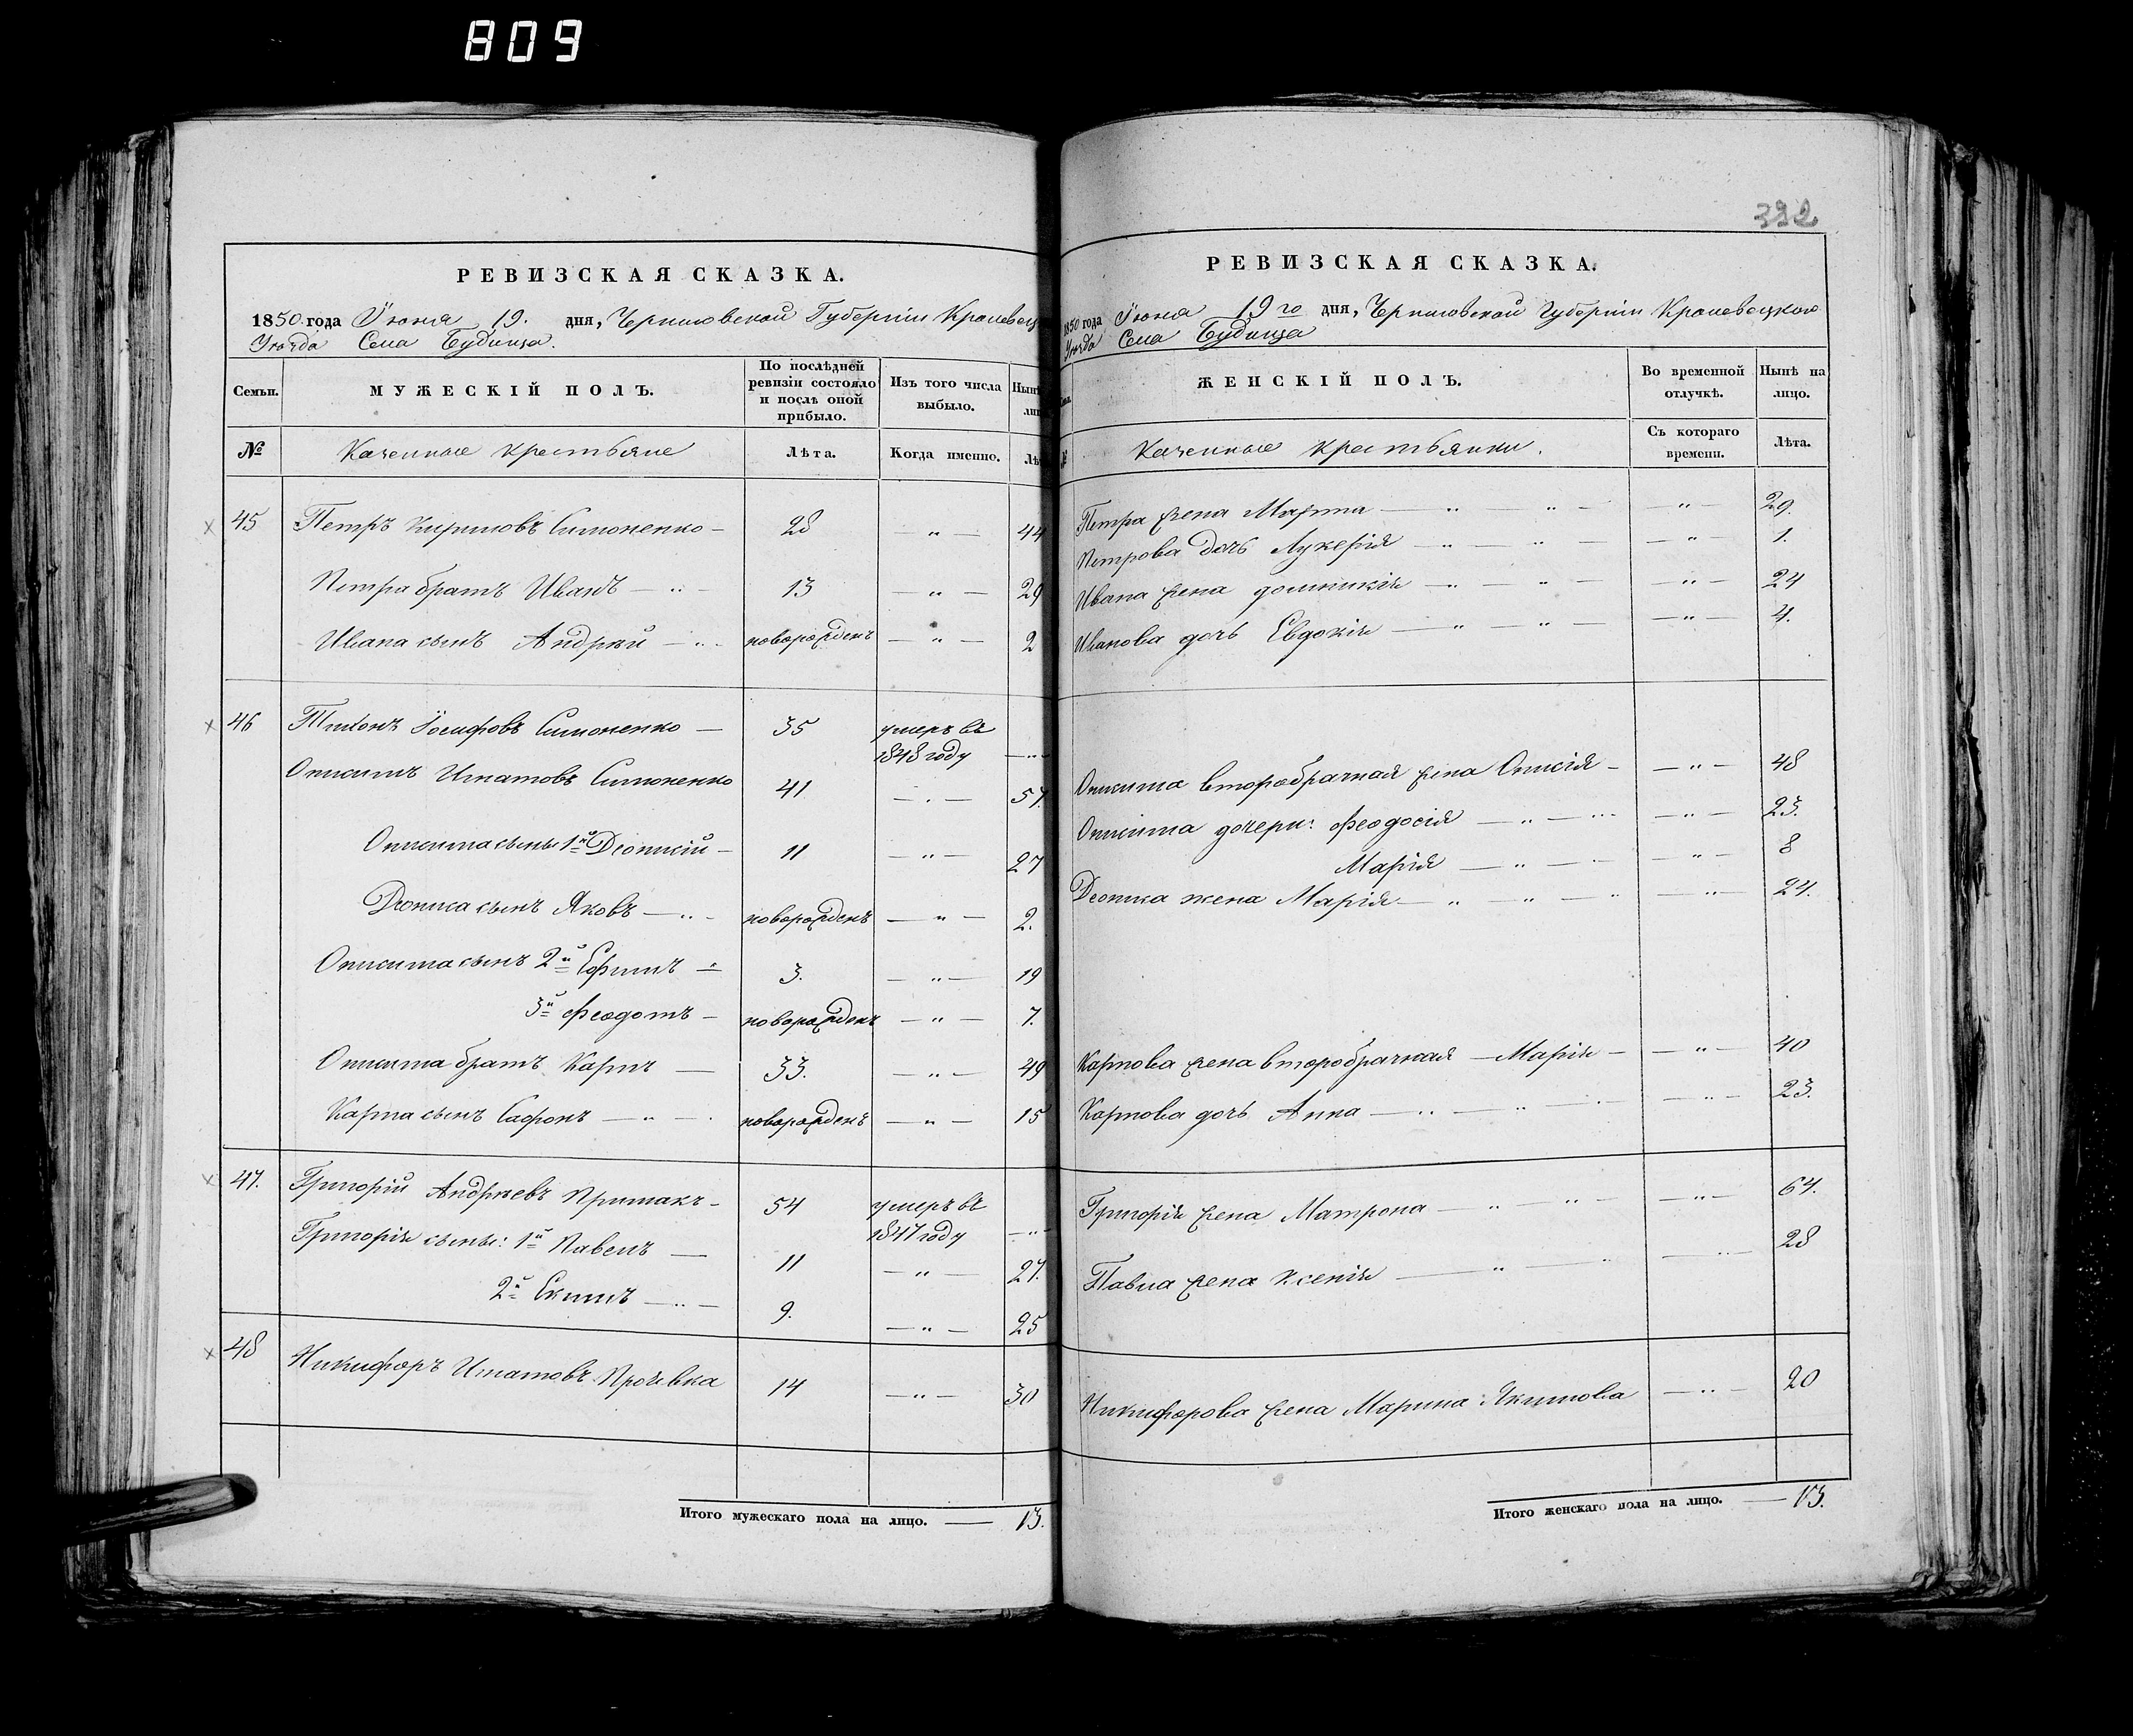 809
392
РЕВИЗСКАЯ СКАЗКА.
1850 года Іюня 19. дня, Черниговской Губерніи Кролевец
Уѣзда Села Будища.
Семьи.
МУЖЕСКІЙ ПОЛЪ.
По послѣдней ревизіи состояло и послѣ оной прибыло.
Изъ того числа выбыло.
№
Казенные крестьяне
Лѣта.
Когда именно.
45 Петръ Кириловъ Симоненко — 28 — „ — 44
Петра братъ Иванъ — „ — 13 — „ — 29
Ивана сынъ Андрей — „ — новорожденъ — „ — 2
46 Тихонъ Іосифовъ Симоненко — 35 умеръ въ
1848 году — „ —
Онисимъ Игнатовъ Симоненко 41 — „ — 57.
Онисима сыны 1й Деонисій — 11 — „ — 27
Деониса сынъ Яковъ — „ — новорожденъ — „ — 2.
Онисима сынъ 2й Ефимъ — 3. — „ — 19
3й Феодотъ — новорожденъ — „ — 7.
Онисима братъ Карпъ — 33. — „ — 49
Карпа сынъ Сафонъ — „ — новорожденъ — „ — 15
47. Григорій Андреевъ Примакъ — 54 умеръ въ
1847 году — „ —
Григорія сыны: 1й Павелъ — 11 — „ — 27.
2й Екимъ — „ — 9. — „ — 25
48 Никифоръ Игнатовъ 14 — „ — 30
Итого мужескаго пола на лицо. — 13.
РЕВИЗСКАЯ СКАЗКА.
1850 года Іюня 19го дня, Черниговской Губерніи Кролевецкого
Уѣзда Села Будища
ЖЕНСКІЙ ПОЛЪ.
Во временной отлучкѣ.
Нынѣ на лицо.
Казенные крестьянки.
Съ котораго времени.
Лѣта.
Петра жена — „ „ — „ — 29.
Петрова дочь Лукерія — „ — „ — — „ — 1.
Ивана жена Домникія — „ — „ — — „ — 24
Иванова дочь Евдокія — „ — „ — — „ — 4.
Онисима второбрачная жена — — „ — 48
Онисима дочери: Феодосія — „ — „ — „ — 23.
Марія — „ — „ — „ — 8
Деониса жена Марія — „ — „ — „ — „ — 24.
Карпова жена второбрачная — Марія — — „ — 40
Карпова дочь Анна — „ — „ — — „ — 23.
Григорія жена Матрона — „ — „ — — „ — 64.
Павла жена Ксенія — „ — „ — „ — 28
Никифорова жена Марина Якимова — „ — 20
Итого женскаго пола на лицо. — 13.